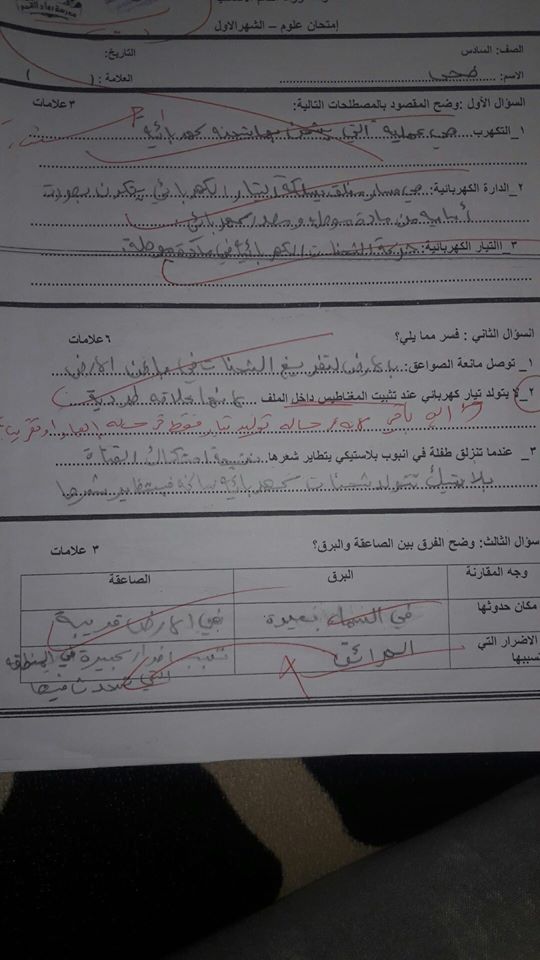 إمتحان علوم – الشهرالاول
الصف: السادس التاريخ:
الاسم: ضحى العلامة : ( )
السؤال الأول :وضح المقصود بالمصطلحات التالية: ٣ علامات
١_التكهرب هي عملية التي يشحن بها شحنه كهربائية
٢_الدارة الكهربائية: هي مسار مغلق يسلكه التيار الكهربائي يتكون بصورة
أساسية من مادة موصله ومصدر كهربائي
٣_التيار الكهربائية: حزمة الشحنات الكهربائية في مادة موصلة
السؤال الثاني : فسر مما يلي؟ ٦ علامات
١_ توصل مانعة الصواعق: بالارض لتفريغ الشحنات في باطن الارض
٢_لا يتولد تيار كهربائي عند تثبيت المغناطيس داخل الملف
توليد تيار فقط
٣_ عندما تنزلق طفلة في انبوب بلاستيكي يتطاير شعرها نتيجة احتكاك الفتاة
بلاستيك تتولد شحنات كهربائية ساكنه فيتطاير شعرها
سؤال الثالث: وضح الفرق بين الصاعقة والبرق؟ ٣ علامات
وجه المقارنة البرق الصاعقة
مكان حدوثها في السماء بعيدة في الارض قريبة
الاضرار التي الحرائق تسبب اضرار كبيرة في المنطقه
تسببها التي تحدث فيها